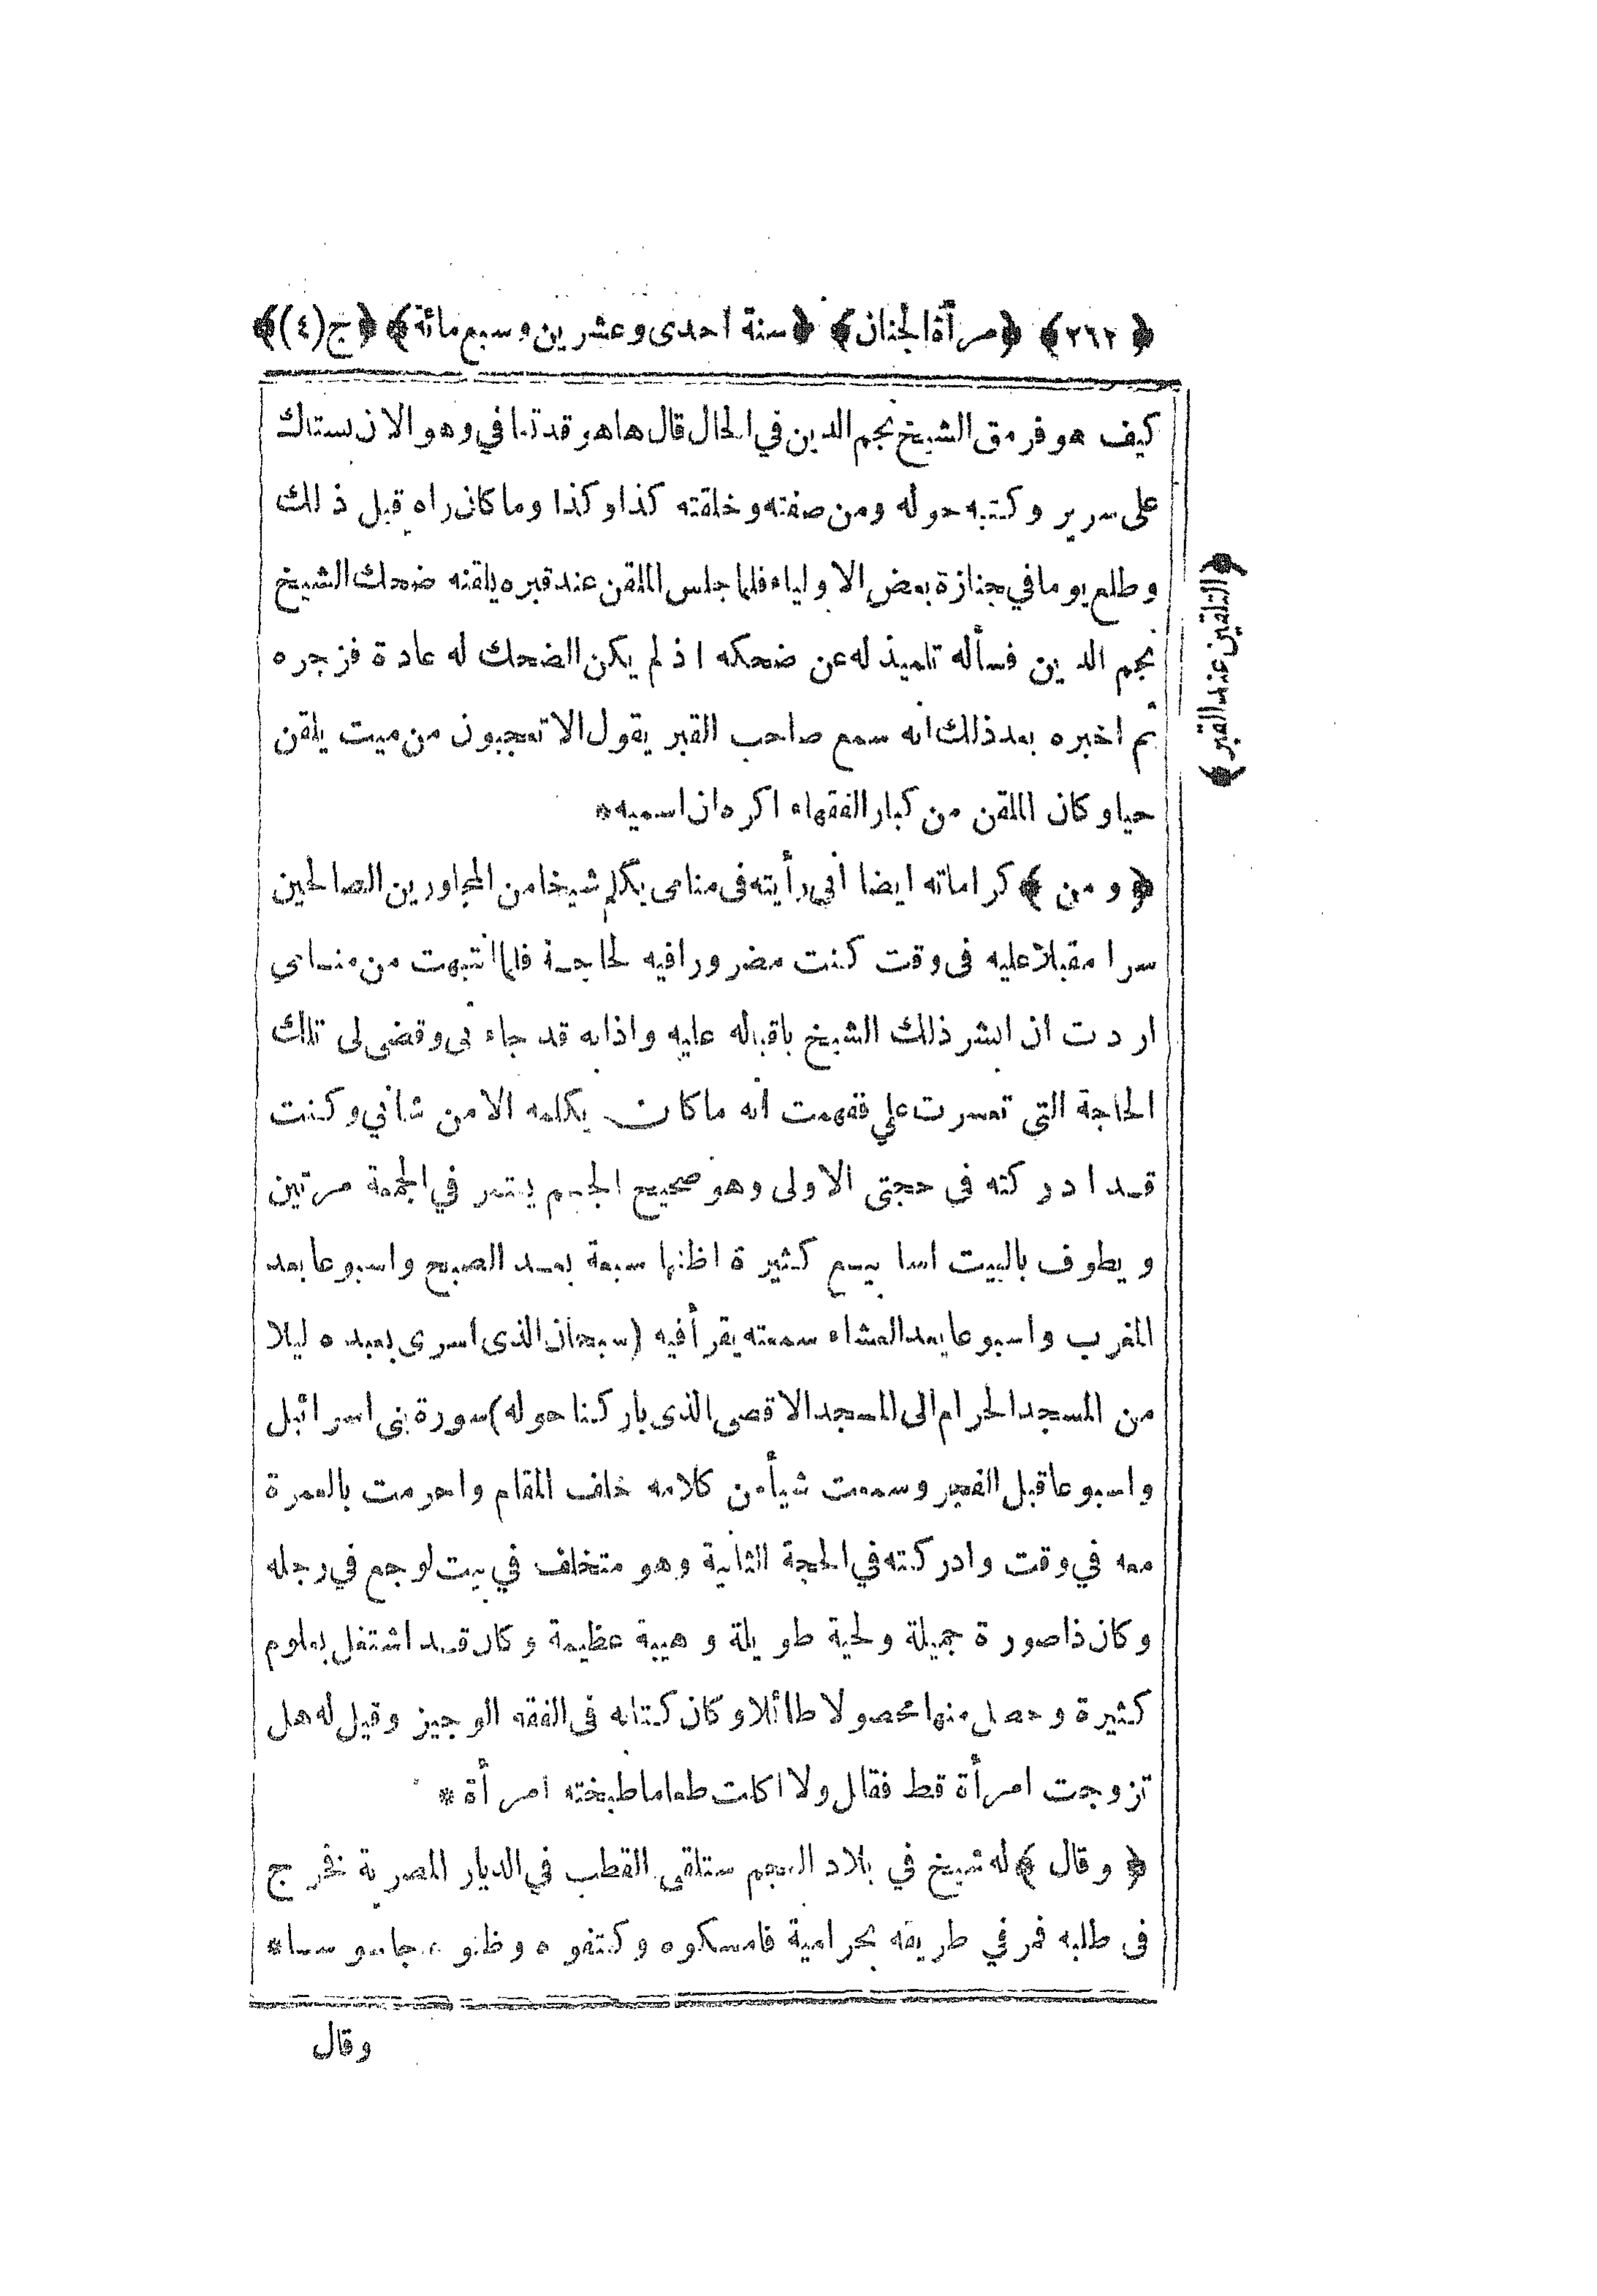 ﴿٢٦٢﴾ ﴿مرأة الجنان﴾ ﴿سنة احدى وعشرين وسبع مائة﴾ ﴿ج(٤)﴾
كيف هو فرمق الشيخ نجم الدين في الحال قال هاهو قد تعافي وهو الان يستاك
على سرير وكتبه حوله ومن صفته وخلقته كذا وكذا وما كان راه قبل ذلك
وطلع يوما في جنازة بعض الاولياء فلما جلس الملقن عند قبره يلقنه ضحك الشيخ
نجم الدين فسأله تلميذ له عن ضحكه اذ لم يكن الضحك له عادة فزجره
ثم اخبره بعد ذلك انه سمع صاحب القبر يقول الا تعجبون من ميت يلقن
حيا وكان الملقن من كبار الفقهاء اكره ان اسميه*
﴿ومن﴾ كراماته ايضا انى رأيته فى منامى يكلم شيخا من المجاورين الصالحين
سرا مقبلا عليه فى وقت كنت مضرورا فيه لحاجة فلما انتبهت من منامي
اردت ان ابشر ذلك الشيخ باقباله عليه واذا به قد جاء نى وقضى لى تلك
الحاجة التى تعسرت علي ففهمت انه ما كان يكلمه الا من شأني وكنت
قد ادركته فى حجتى الاولى وهو صحيح الجسم يعتمر في الجمعة مرتين
ويطوف بالبيت اسابيع كثيرة اظنها سبعة بعد الصبح واسبوعا بعد
المغرب واسبوعا بعد العشاء سمعته يقرأ فيه (سبحان الذى اسرى بعبده ليلا
من المسجد الحرام الى المسجد الاقصى الذى باركنا حوله) سورة بنى اسرائيل
واسبوعا قبل الفجر وسمعت شيأ من كلامه خلف المقام واحرمت بالعمرة
معه في وقت وادركته في الحجة الثانية وهو متخلف في بيت لوجع في رجله
وكان ذا صورة جميلة ولحية طويلة وهيبة عظيمة وكان قد اشتغل بعلوم
كثيرة وحصل منها محصولا طائلا وكان كتابه فى الفقه الوجيز وقيل له هل
تزوجت امرأة قط فقال ولا اكلت طعاما طبخته امرأة*
﴿وقال﴾ له شيخ في بلاد العجم ستلقى القطب في الديار المصرية فخرج
فى طلبه فمر في طريقه بحرامية فامسكوه وكتفوه وظنوه جاسوسا*
وقال
﴿التلقين عند القبر﴾